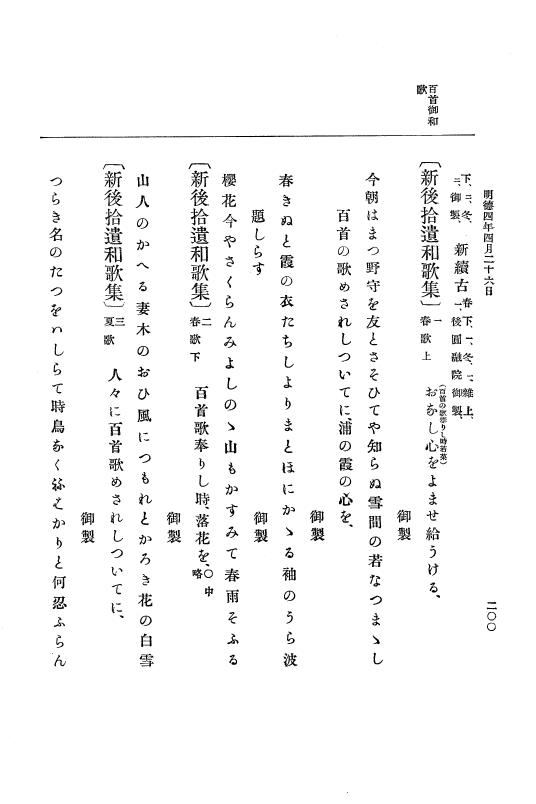 明德四年四月二十六日
二〇〇
百首御和
歌
下、三、冬、
三、御製、
新續古
春下、一、冬、一、雜上、
一、後圓融院御製、
〔新後拾遺和歌集〕一 春歌上
(百首の歌奉りし時若菜)
おなし心をよませ給うける、
御製
今朝はまつ野守を友とさそひてや知らぬ雪間の若なつまゝし
百首の歌めされしついてに、浦の霞の心を、
御製
春きぬと霞の衣たちしよりまとほにかゝる袖のうら波
題しらす
御製
櫻花今やさくらんみよしのゝ山もかすみて春雨そふる
〔新後拾遺和歌集〕二 春歌下 百首歌奉りし時、落花を、〇中略
御製
山人のかへる妻木のおひ風につもれとかろき花の白雪
〔新後拾遺和歌集〕三 夏歌 人々に百首歌めされしついてに、
御製
つらき名のたつをハしらて時鳥なく
かりと何忍ふらん